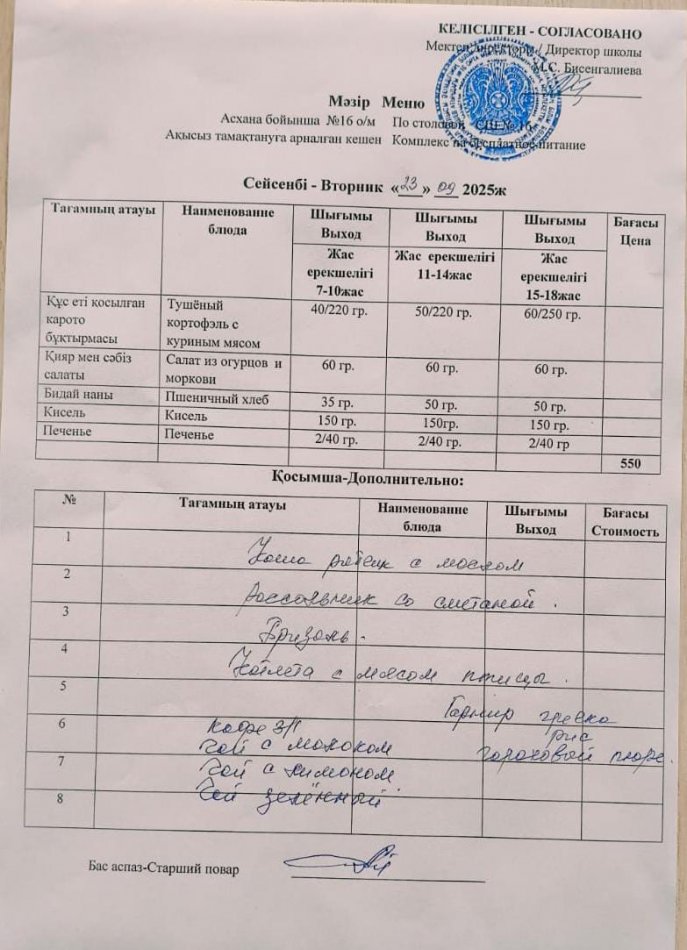 КЕЛІСІЛГЕН - СОГЛАСОВАНО
Мектеп директоры / Директор школы
М.С. Бисенгалиева
Мәзір Меню
Асхана бойынша №16 о/м По столовой СШ №
Ақысыз тамақтануға арналған кешен Комплекс на бесплатное питание
Сейсенбі - Вторник «23» 09 2025ж
Тағамның атауы Наименование блюда Шығымы Выход Шығымы Выход Шығымы Выход Бағасы Цена
Жас ерекшелігі 7-10жас Жас ерекшелігі 11-14жас Жас ерекшелігі 15-18жас
Құс еті қосылған карото бұқтырмасы Тушёный кортофэль с куриным мясом 40/220 гр. 50/220 гр. 60/250 гр.
Қияр мен сәбіз салаты Салат из огурцов и моркови 60 гр. 60 гр. 60 гр.
Бидай наны Пшеничный хлеб 35 гр. 50 гр. 50 гр.
Кисель Кисель 150 гр. 150гр. 150 гр.
Печенье Печенье 2/40 гр. 2/40 гр. 2/40 гр
550
Қосымша-Дополнительно:
№ Тағамның атауы Наименование блюда Шығымы Выход Бағасы Стоимость
1 Каша с маслом
2 Рассольник со сметаной.
3 Бризоль.
4 Котлета с мясом птицы.
5 Гарнир гречка
рис
гороховой пюре.
6 Кофе 3/1
Чай с молоком
7 Чай с лимоном
8 Чай зелённый
Бас аспаз-Старший повар